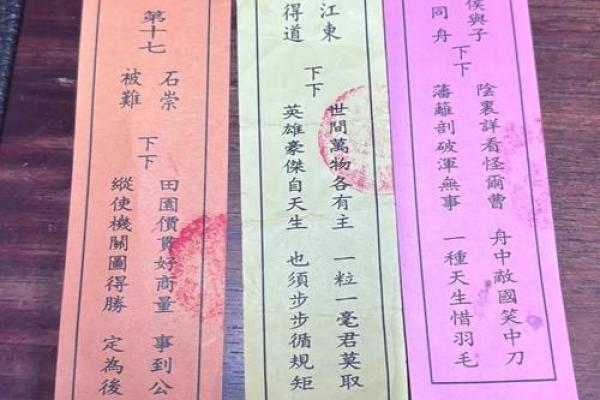 第十七
石崇
被難
下下
田園價貫好商量 事到公
縱使機關圖得勝 定為後
江東
得道
下下
世間萬物各有主 一粒一毫君莫取
英雄豪傑自天生 也須步步循規矩
侯與子
同舟
下下
陰裏詳看怪爾曹 舟中敵國笑中刀
藩籬剖破渾無事 一種天生惜羽毛